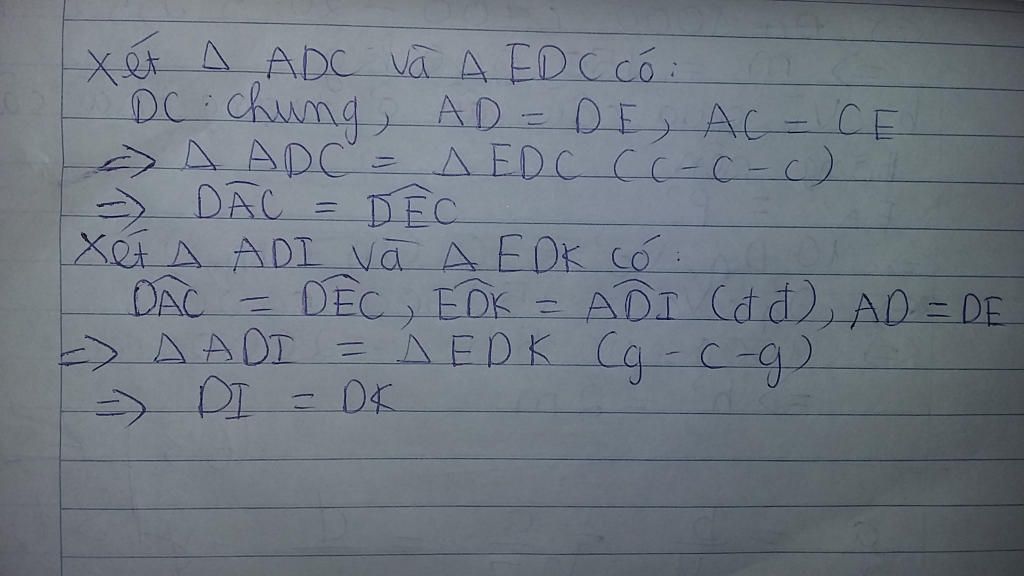 Xét Δ ADC và Δ EDC có:
DC: chung, AD = DE, AC = CE
=> Δ ADC = Δ EDC (c-c-c)
=> \widehat{DAC} = \widehat{DEC}
Xét Δ ADI và Δ EDK có:
\widehat{DAC} = \widehat{DEC}, \widehat{EDK} = \widehat{ADI} (đđ), AD = DE
=> Δ ADI = Δ EDK (g-c-g)
=> DI = DK